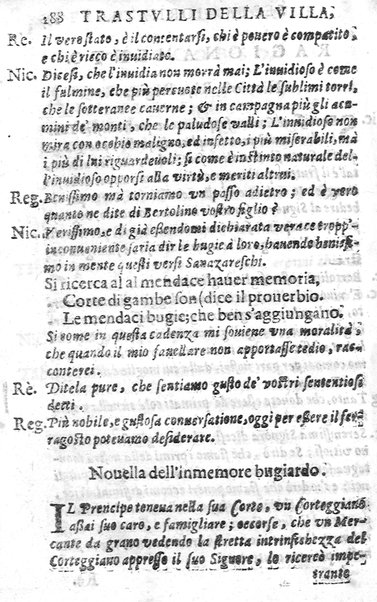 288 TRASTVLLI DELLA VILLA,
Re. Il vero stato, è il contentarsi, chi è pouero è compatito,
e chi è rico è inuidiato.
Nic. Dicesi, che l'inuidia non morrà mai; L'inuidioso è come
il fulmine, che più percuote nelle Città le sublimi torri,
che le sotteranee cauerne; & in campagna più gli acu-
mini de' monti, che le paludose valli; L'inuidioso non
mira con occhio maligno, ed infetto, i più miserabili, mà
i più di lui riguardeuoli; si come è instinto naturale del-
l'inuidioso opporsi alla virtù, e meriti altrui.
Reg. Benissimo mà torniamo un passo adietro; ed è vero
quanto ne dite di Bertolino vostro figlio?
Nic. Verissimo, e di già essendomi dichiarata verace tropp'
inconueniente saria dir le bugie à loro, hauendo benissi-
mo in mente questi versi Sanazareschi.
Si ricerca al al mendace hauer memoria,
Corte di gambe son (dice il prouerbio.
Le mendaci bugie; che ben s'aggiungano.
Si come in questa cadenza mi souiene vna moralità,
che quando il mio fauellare non apportasse tedio, rac-
conterei.
Rè. Ditela pure, che sentiamo gusto de' vostri sententiosi
detti.
Reg. Più nobile, e gustosa conuersatione, oggi per essere il fer-
ragosto poteuamo desiderare.
Nouella dell'inmemore bugiardo.
IL Prencipe teneua nella sua Corte, vn Corteggiano
assai suo caro, e famigliare; occorse, che vn Mer-
cante da grano vedendo la stretta intrinsichezza del
Corteggiano appresso il suo Signore, lo ricercò impe-
trante